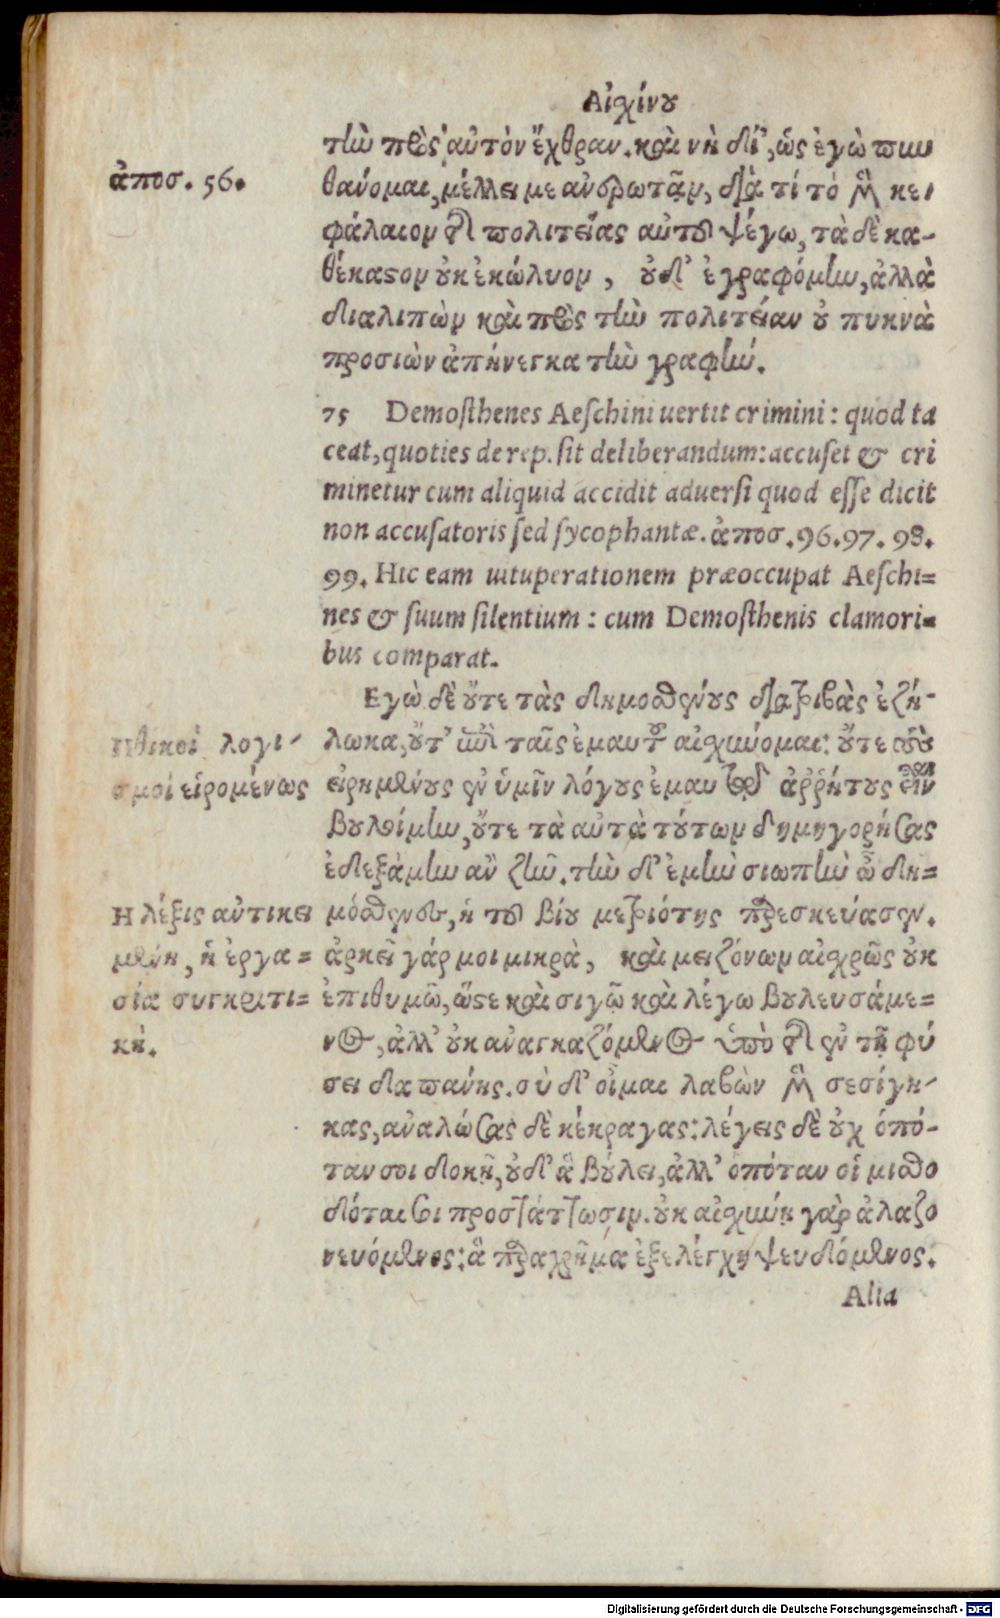 Αἰχίνου
τὴν πρὸς αὐτὸν ἔχθραν. καὶ νὴ δί', ὡς ἐγὼ πυν
ἀποσ. 56.
θάνομαι, μέλλει με ἀνερωτᾶν, διὰ τί τὸ μὲν κε-
φάλαιον τῆς πολιτείας αὐτοῦ ψέγω, τὰ δὲ κα-
θέκαστον οὐκ ἐκώλυον, οὐδ' ἐγραφόμην, ἀλλὰ
διαλιπὼν καὶ πρὸς τὴν πολιτείαν οὐ πυκνὰ
προσιὼν ἀπήνεγκα τὴν γραφήν.
75 Demosthenes Aeschini uertit crimini: quod ta
ceat, quoties de rep. sit deliberandum: accuset & cri
minetur cum aliquid accidit aduersi quod esse dicit
non accusatoris sed sycophantæ. ἀποσ. 96. 97. 98.
99. Hic eam uituperationem præoccupat Aeschi=
nes & suum silentium: cum Demosthenis clamori=
bus comparat.
Εγὼ δὲ οὔτε τὰς δημοσθένους διατριβὰς ἐζή-
Ηθικοὶ λογι-
λωκα, οὔτ' ἐπὶ ταῖς ἐμαυτοῦ αἰσχύνομαι: οὔτε τοὺς
σμοὶ εἰρομένως
εἰρημένους ἐν ὑμῖν λόγους ἐμαυτῷ ἀῤῥήτους εἶναι
βουλοίμην, οὔτε τὰ αὐτὰ τούτων δημηγορήσας
ἐδεξάμην ἂν ζῆν. τὴν δ' ἐμὴν σιωπὴν ὦ δη=
Η λέξις αὐτικει
μόσθενες, ἡ τοῦ βίου μετριότης παρεσκεύασεν.
μένη, ἡ ἐργα=
ἀρκεῖ γάρ μοι μικρὰ, καὶ μειζόνων αἰχρῶς οὐκ
σία συγκριτι=
ἐπιθυμῶ, ὥστε καὶ σιγῶ καὶ λέγω βουλευσάμε=
κή.
νος, ἀλλ' οὐκ ἀναγκαζόμενος ὑπὸ τῆς ἐν τῇ φύ
σει δαπάνης. σὺ δ' οἶμαι λαβὼν μὲν σεσίγη-
κας, ἀναλώσας δὲ κέκραγας: λέγεις δὲ οὐχ ὁπό-
ταν σοι δοκῇ, οὐδ' ἃ βούλει, ἀλλ' ὁπόταν οἱ μισθο
δόται σοι προστάττωσιν. οὐκ αἰσχύνῃ γὰρ ἀλαζο
νευόμενος: ἃ παραχρῆμα ἐξελέγχῃ ψευδόμενος.
Alia
Digitalisierung gefördert durch die Deutsche Forschungsgemeinschaft - DFG